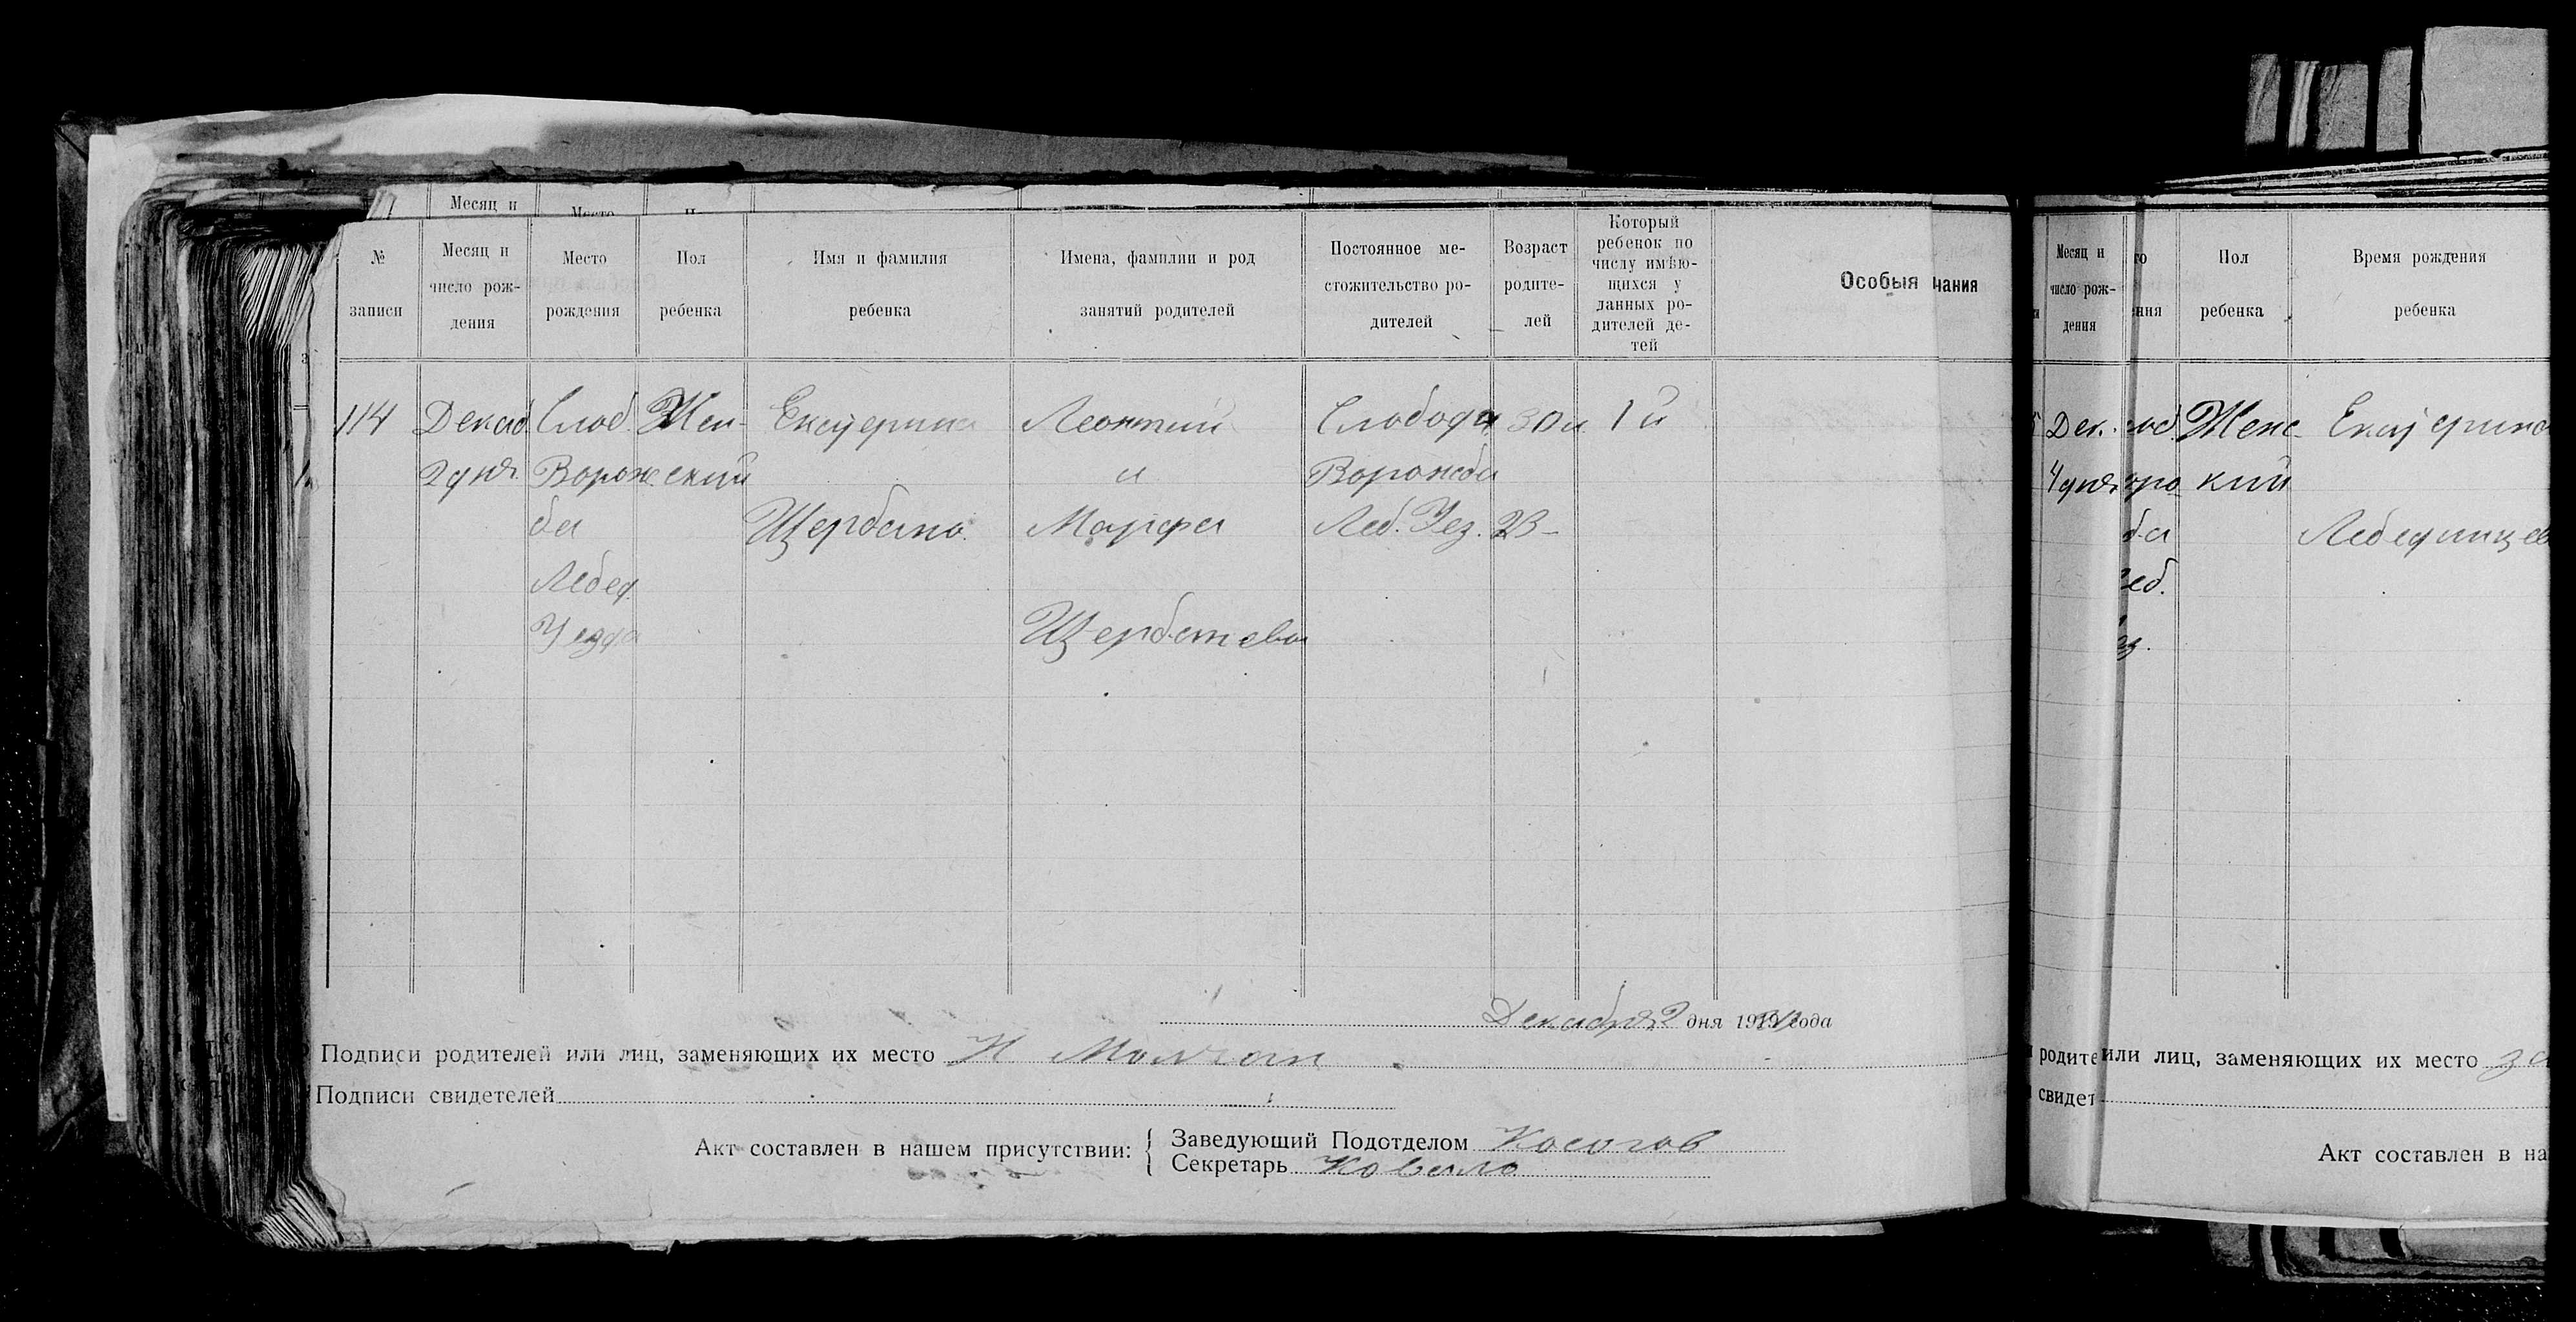 Месяц и
Место
№ записи
Месяц и число рождения
Место рождения
Пол ребенка
Имя и фамилия ребенка
Имена, фамилии и род занятий родителей
Постоянное местожительство родителей
Возраст родителей
Который ребенок по числу имѣющихся у данных родителей детей
Особыя чания
114 Декаб Слоб. Жен- Екатерина Леонтий Слобода 30 и 1й
2 дня Ворож ский и Ворожба
ба Щербань Марфа Леб. Уез. 23-
Лебед.
Уезда
Декабря 2 дня 19 года
Подписи родителей или лиц, заменяющих их место
Подписи свидетелей
Акт составлен в нашем присутствии: Заведующий Подотделом Косогов
Секретарь Ковало
Месяц и число рождения
го
ния
Пол ребенка
Время рождения ребенка
Дек. Женс Екатерина
4 дня кий
ба
еб.
родите или лиц, заменяющих их место
свидет
Акт составлен в на